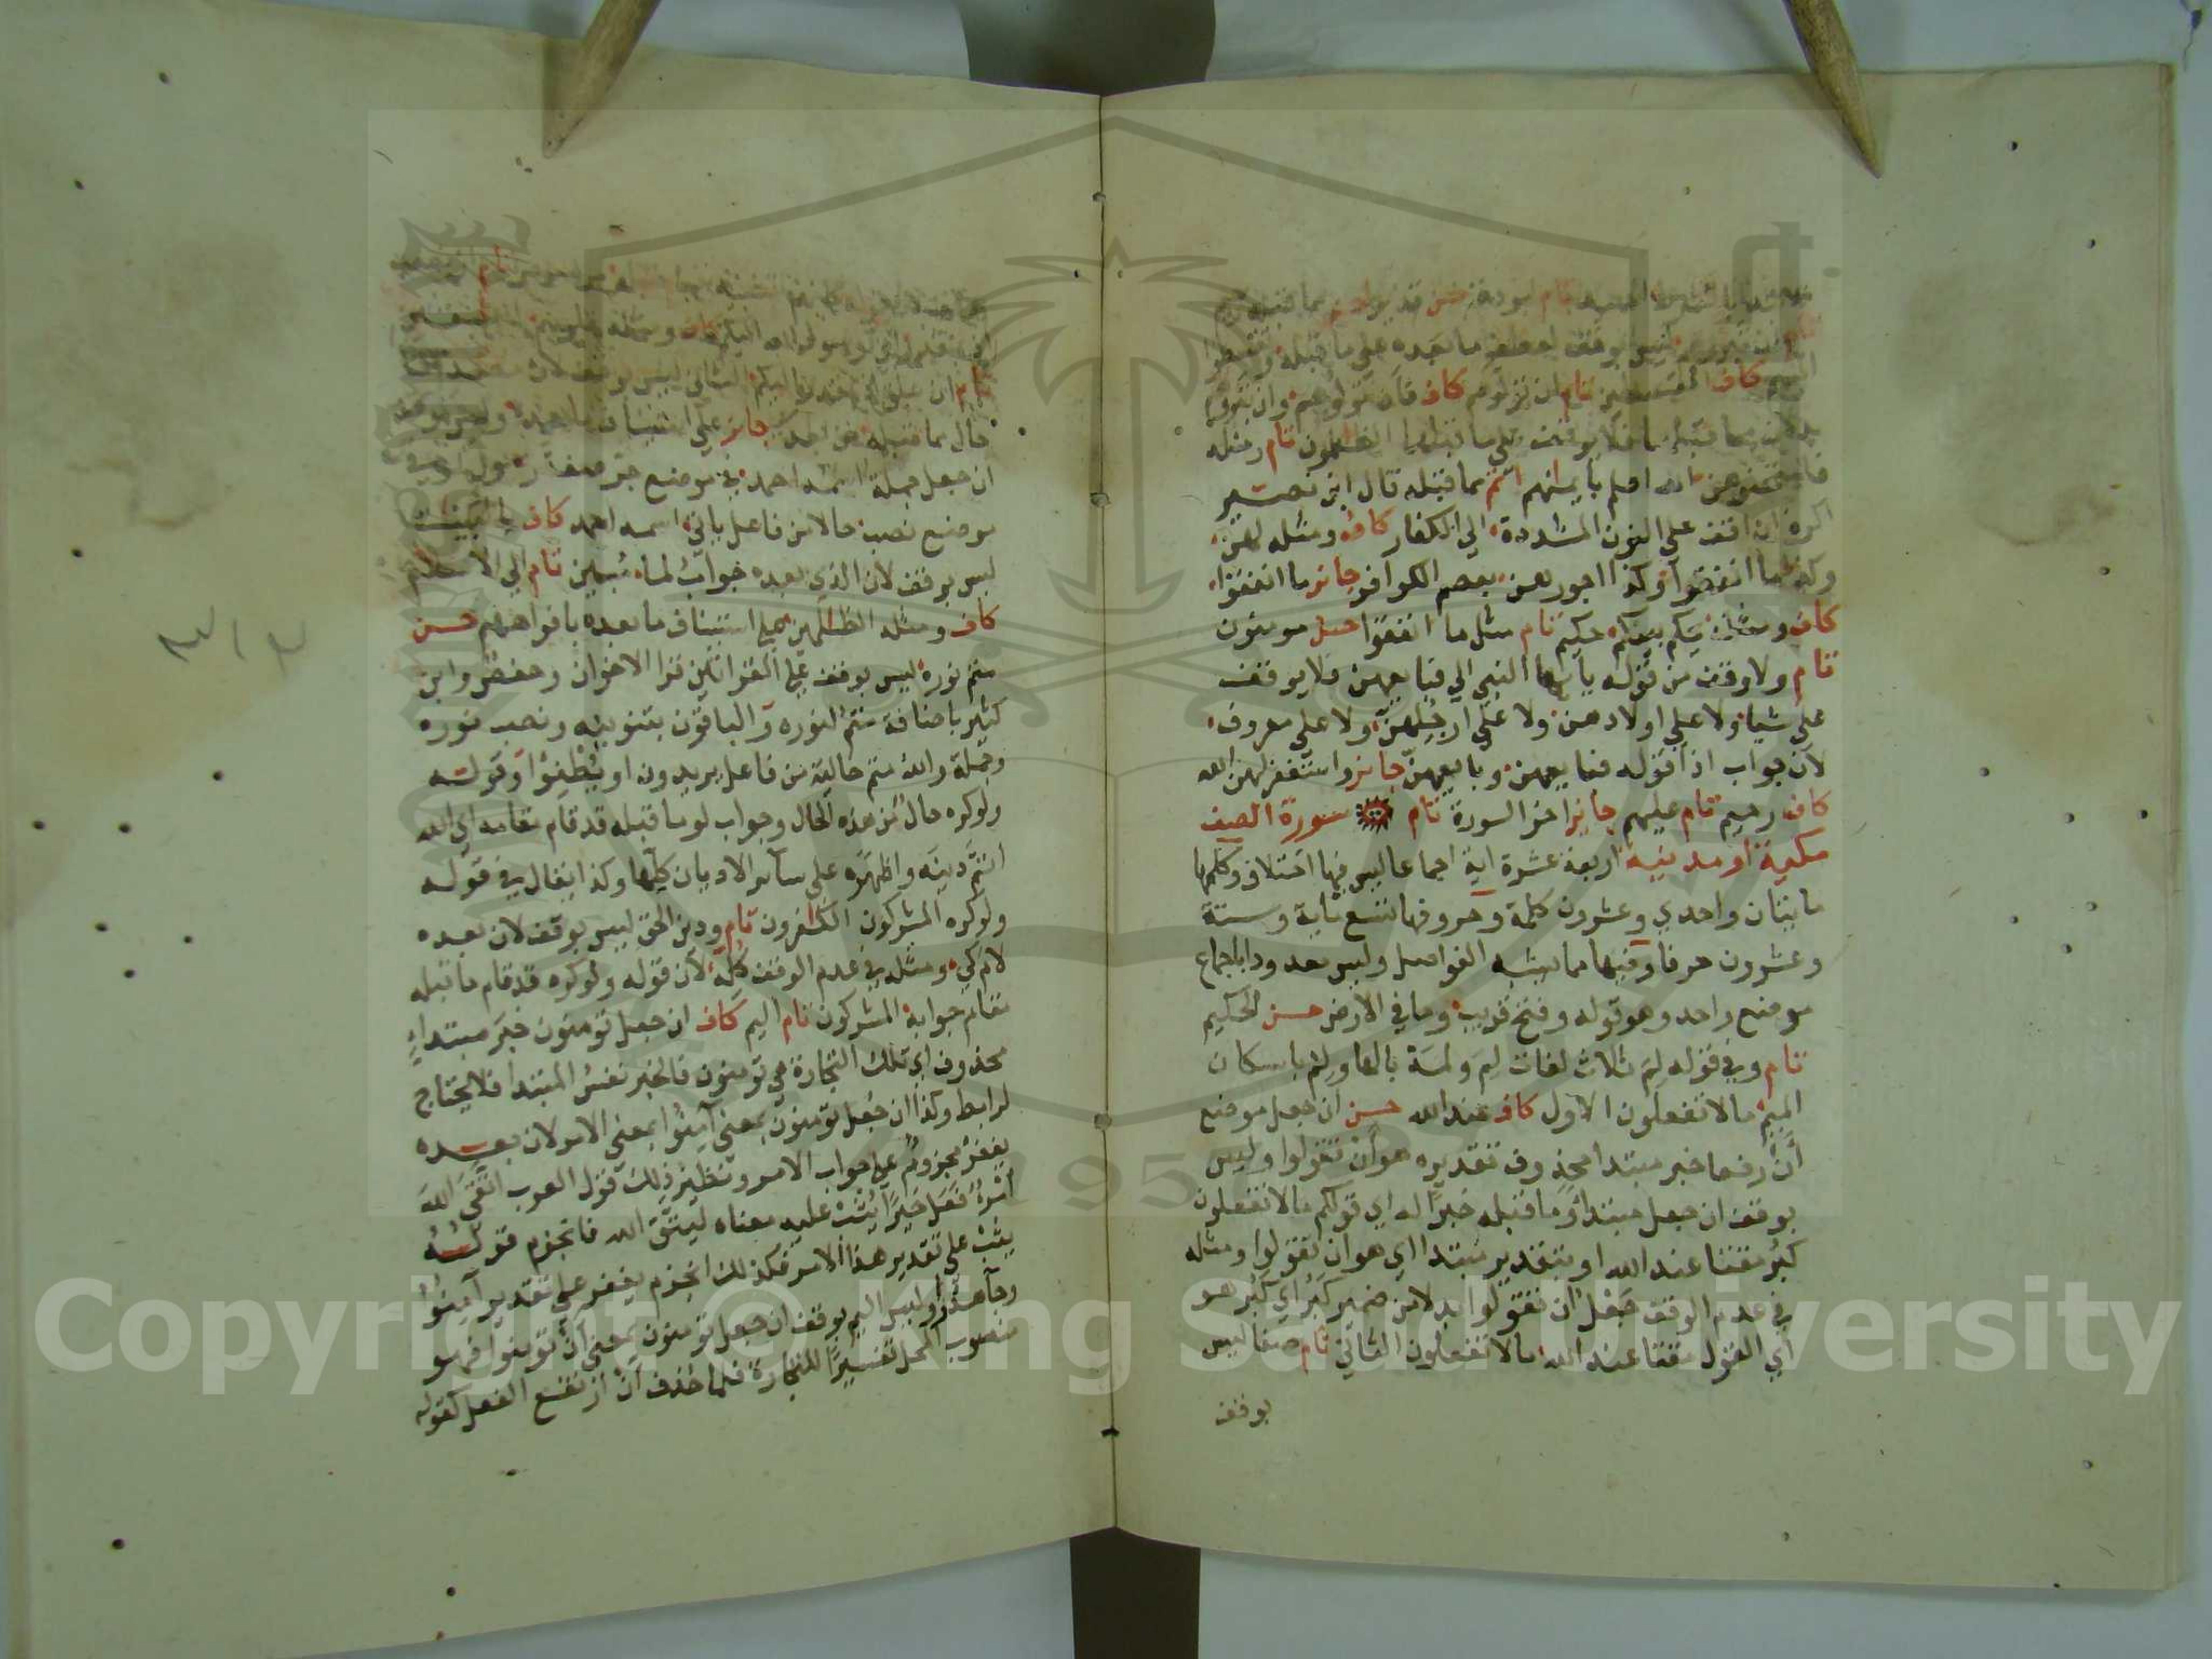 الحميد تام مودة حسن قدير اتم مما قبله رحيم
ليس بوقف لعطف ما بعده على ما قبله وتقسطوا
اليهم كاف المقسطين تام ان تولوهم كاف فان تولوهم وان تبروهم
مما قبلهما فلا يوقف على ما قبلهما الظلمون تام ومثله
فامتحنوهن الله اعلم بايمانهن اتم مما قبله قال ابن نصير
اكره ان اقف على النون المشددة الي الكفار كاف ومثله لهن
وكذا ما انفقوا وكذا اجورهن بعصم الكوافر جايز ما انفقوا
كاف ومثله بينكم حكيم تام مثل ما انفقوا حسن مومنون
تام ولا وقف من قوله يا ايها النبي الي فبايعهن فلا يوقف
على شيا ولا على اولادهن ولا على ارجلهن ولا على معروف
لان جواب اذا قوله فبايعهن وبايعهن جايز واستغفر لهن الله
كاف رحيم تام عليهم جايز اخر السورة تام سورة الصف
مكية او مدنيه اربعة عشرة اية اجماعا ليس فيها اختلاف وكلمها
مايتان واحدي وعشرون كلمة وحروفها تسع ماية وستة
وعشرون حرفا وفيها مما يشبه الفواصل وليس معدودا باجماع
موضع واحد وهو قوله وفتح قريب وما في الارض حسن الحكيم
تام وفي قوله لم ثلاث لغات لم ولمه بالها ولم باسكان
الميم ما لا تفعلون الاول كاف عند الله حسن ان جعل موضع
أن رفعا خبر مبتدا محذوف تقديره هو أن تقولوا وليس
بوقف ان جعل مبتدا وما قبله خبرا له اي قولكم ما لا تفعلون
كبر مقتا عند الله او بتقدير مبتدا اي هو ان تقولوا ومثله
في عدم الوقف جعل ان تقولوا بدلا من ضمير كبر اي كبر هو
اي القول مقتا عند الله ما لا تفعلون الثاني تام صفا ليس
بوقف
رسول الله اليكم كاف ومثله قلوبهم الفسقين
تام اليكم الثاني ليس بوقف لان مصدقا
حال مما قبله من بعدي جايز على استيناف ما بعده وليس بوقف
ان جعل جملة اسمه احمد في موضع جر صفة رسول او في
موضع نصب حالا من فاعل ياتي اسمه احمد كاف بالبينات
ليس بوقف لان الذي بعده جواب لما مبين تام الي الاسلام
كاف ومثله الظلمين على استيناف ما بعده بافواههم حسن
متم نوره ليس بوقف على القراتين قرا الاخوان وحفص وابن
كثير باضافة متم لنوره والباقون بتنوينه ونصب نوره
وجملة والله متم حالية من فاعل يريدون او يطفئوا وقوله
ولو كره حال من هذه الحال وجواب لو ما قبله قد قام مقامه اي الله
اتم دينه واظهره على سائر الاديان كلها وكذا يقال في قوله
ولو كره المشركون الكافرون تام ودين الحق ليس بوقف لان بعده
لام كي ومثله في عدم الوقف كله لان قوله ولو كره قد قام ما قبله
مقام جوابه المشركون تام اليم كاف ان جعل تومنون خبر مبتداءٍ
محذوف اي تلك التجارة هي تومنون فالخبر نفس المبتدا فلا يحتاج
لرابط وكذا ان جعل تومنون بمعني آمنوا بمعني الامر لان بعده
يغفر مجزوم على جواب الامر ونظير ذلك قول العرب اتقى اللهَ
امرؤ فعل خيرا يثب عليه معناه ليتق الله فانجزم قوله
يثب على تقدير هذا الامر فكذلك انجزم يغفر على تقدير آمنوا
وجاهدوا وليس اليم بوقف ان جعل تومنون بمعني أن تومنوا فهو
منصوب المحل تفسيرا للتجارة فلما حذف أن ارتفع الفعل كقوله
Copyright © King Saud University
1957